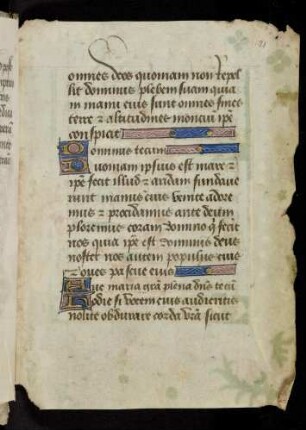 omnes deos quoniam non repel
lit dominus plebem suam quia
in manu eius sunt omnes fines
terre et altitudines moncium ipse
conspicit
Dominus tecum
Quoniam ipsius est mare et
ipse fecit illud et aridam fundaue
runt manus eius venite adore
mus et procidamus ante deum
ploremus coram domino qui fecit
nos quia ipse est dominus deus
noster nos autem populus eius
et oues pascue eius
Aue maria gra plena dns tecu
Hodie si vocem eius audieritis
nolite obdurare corda vra sicut